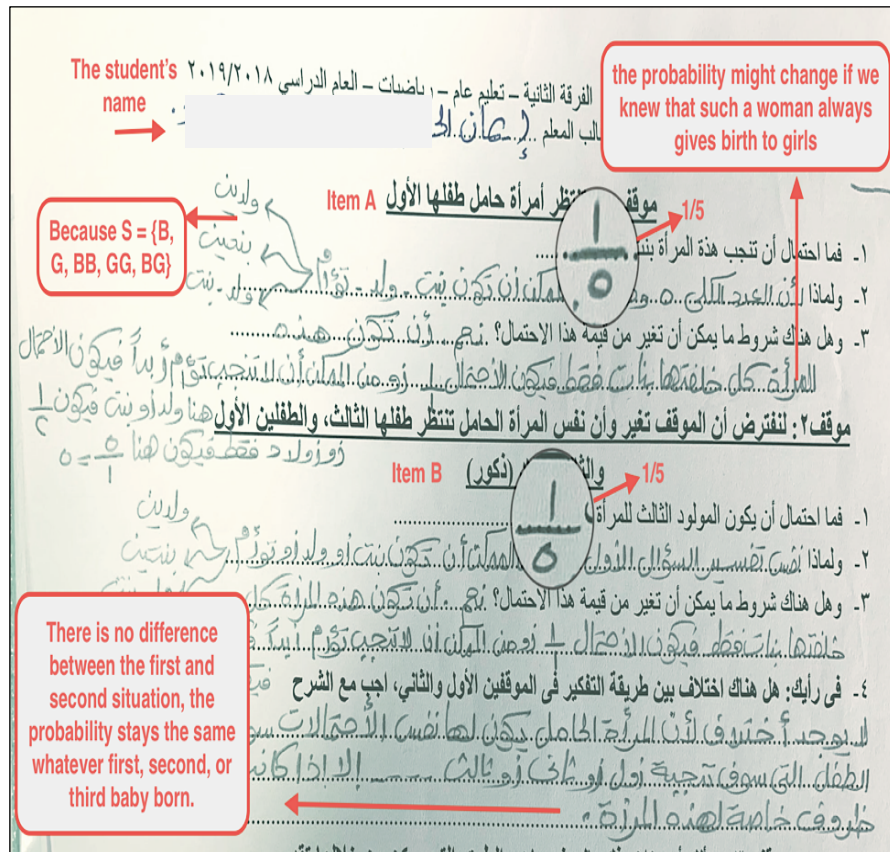 The student's
name
الفرقة الثانية – تعليم عام – رياضيات – العام الدراسي ٢٠١٩/٢٠١٨
الب المعلم إيمان
the probability might change if we
knew that such a woman always
gives birth to girls
Item A
موقف تنتظر أمرأة حامل طفلها الأول
ولدين
بنتين
ولد - بنت
Because S = {B,
G, BB, GG, BG}
١- فما احتمال أن تنجب هذه المرأة بنت
١/٥
1/5
٢- ولماذا لأن العدد الكلى ٥ ممكن أن تكون بنت - ولد - توأم
٣- وهل هناك شروط ما يمكن أن تغير من قيمة هذا الاحتمال؟ نعم أن تكون هذه
المرأة كل خلفتها بنات فقط فيكون الاحتمال ١ أو من الممكن أن لا تنجب توأم أبداً فيكون الاحتمال
هنا ولد أو بنت فيكون ١/٢
موقف٢: لنفترض أن الموقف تغير وأن نفس المرأة الحامل تنتظر طفلها الثالث، والطفلين الأول
أو أولاد فقط فيكون هنا
(ذكور)
Item B
١- فما احتمال أن يكون المولود الثالث للمرأة
١/٥
1/5
ولدين
٢- ولماذا نفس تفسير السؤال الأول الممكن أن تكون بنت أو ولد أو توأم
بنتين
٣- وهل هناك شروط ما يمكن أن تغير من قيمة هذا الاحتمال؟ نعم أن تكون هذه المرأة كل
خلفتها بنات فقط فيكون الاحتمال أو من الممكن أن لا تنجب توأم أبداً
٤- فى رأيك: هل هناك اختلاف بين طريقة التفكير فى الموقفين الأول والثاني، اجب مع الشرح
لا يوجد أختلاف لأن المرأة الحامل يكون لها نفس الأحتمالات
الطفل التى سوف تنجبة أول أو ثانى أو ثالث إلا إذا كانت
ظروف خاصة لهذه المرأة.
There is no difference
between the first and
second situation, the
probability stays the same
whatever first, second, or
third baby born.